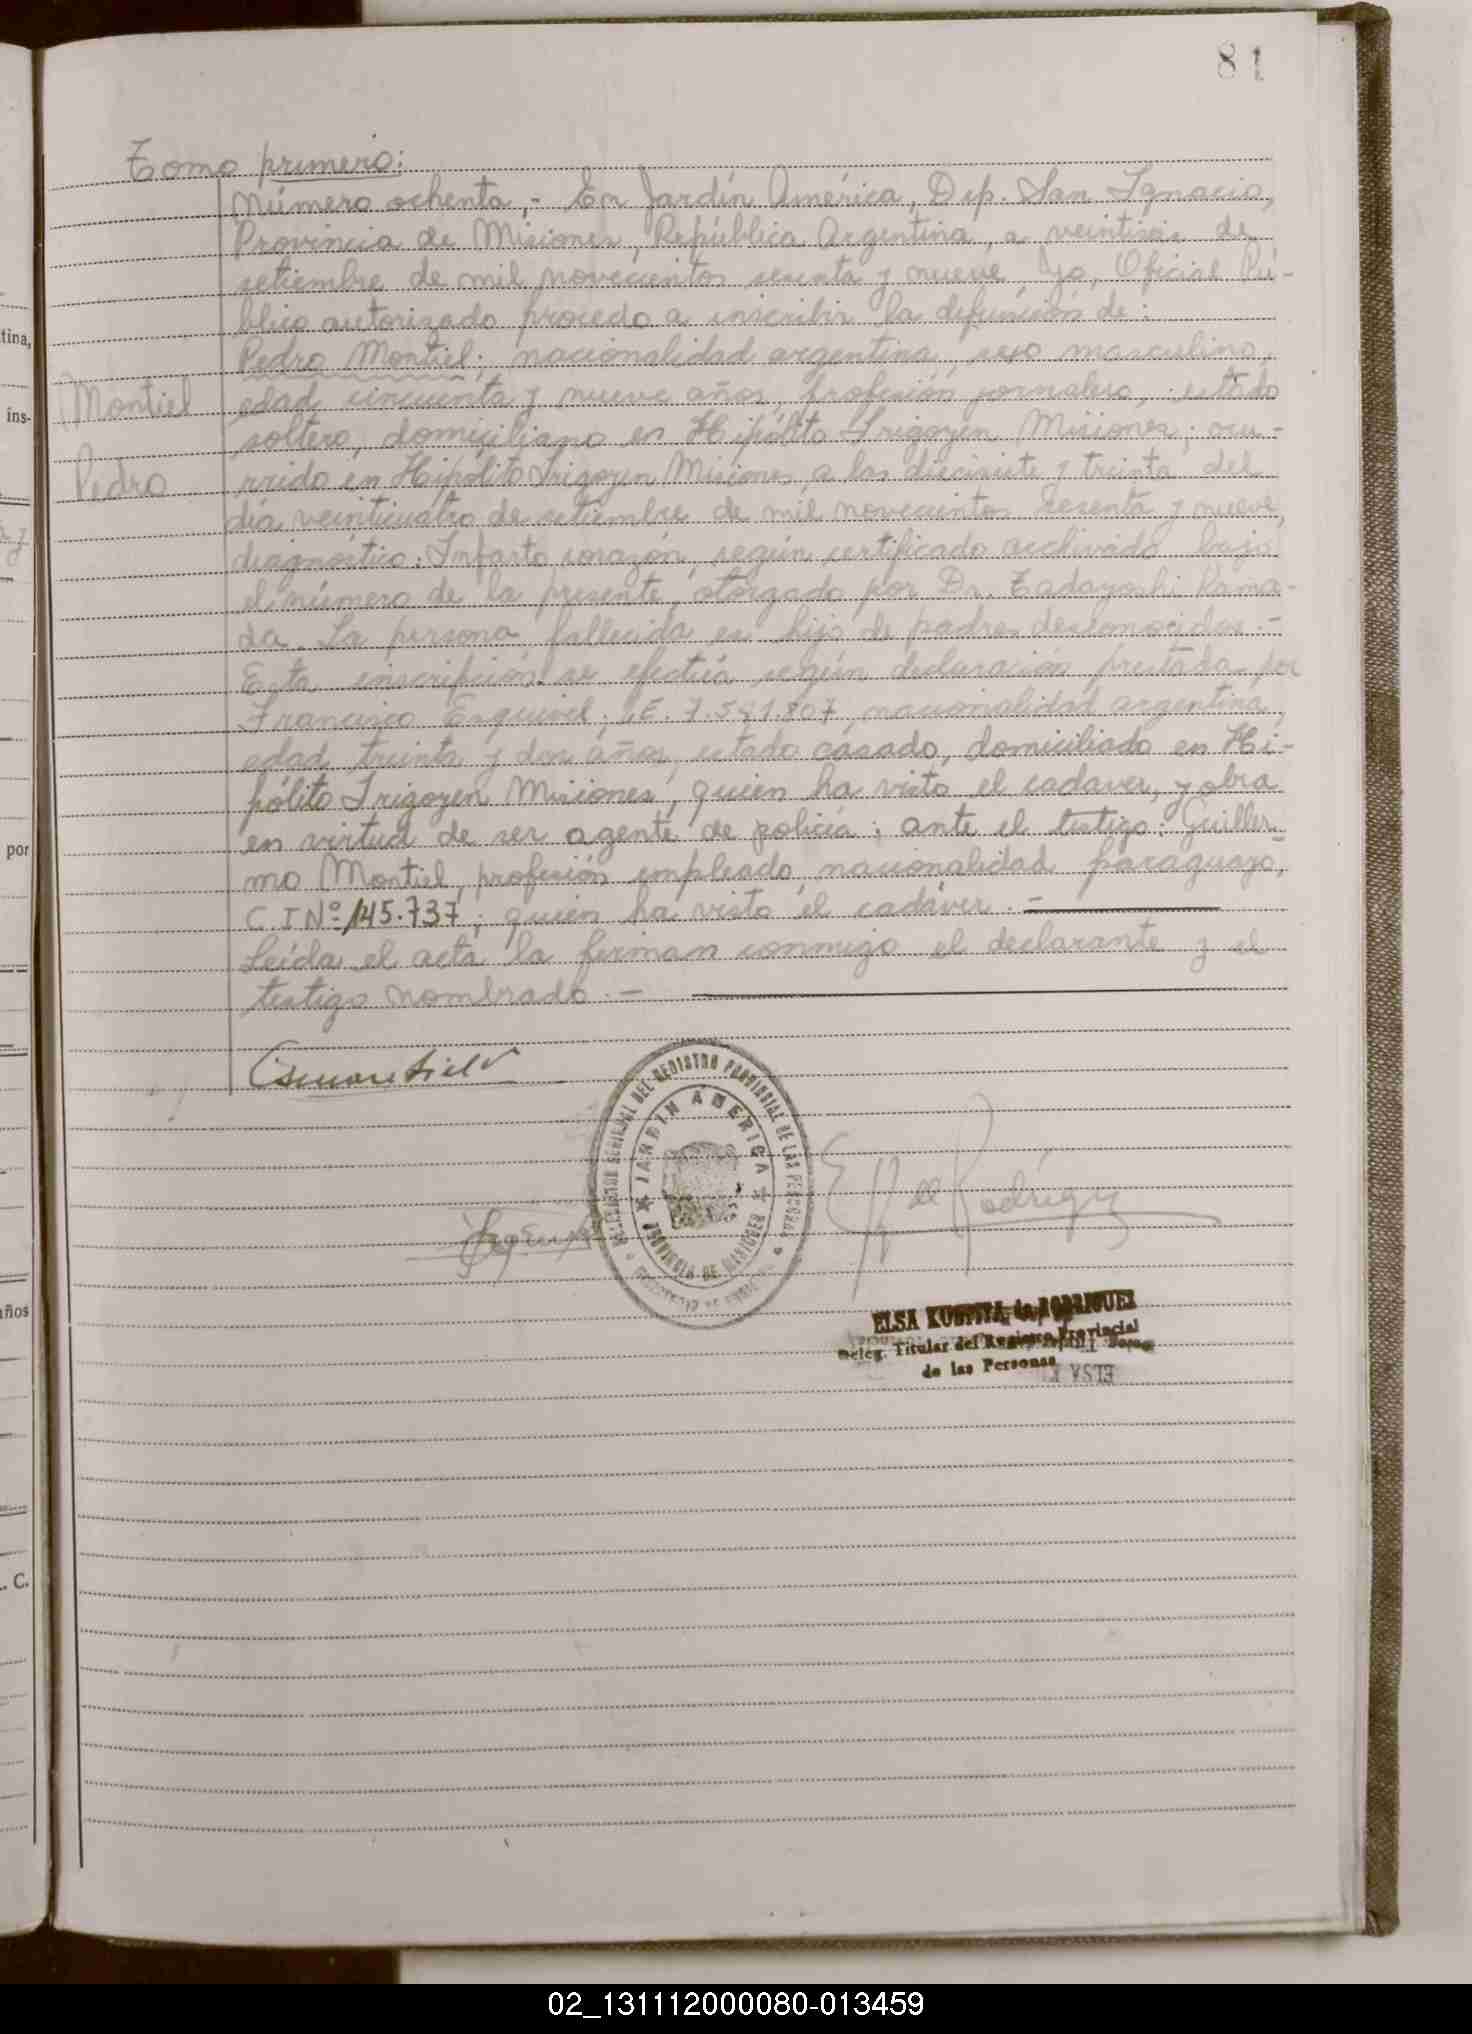 81
Tomo primero:
Número ochenta,- En Jardín América, Dep. San Ignacio,
Provincia de Misiones, República Argentina, a veintiseis de
setiembre de mil novecientos sesenta y nueve, Yo, Oficial Pú-
blico autorizado procedo a inscribir la defunción de:
Pedro Montiel; nacionalidad argentina, sexo masculino,
Montiel
edad cincuenta y nueve años, profesión jornalero, estado
soltero, domiciliano en Hipólito Irigoyen Misiones; ocu-
Pedro
rrido en Hipólito Irigoyen Misiones, a las diecisiete y treinta del
día veinticuatro de setiembre de mil novecientos sesenta y nueve,
diagnóstico: Infarto corazón, según certificado archivado bajo
el número de la presente, otorgado por Dr. Tadayoshi Kama-
da. La persona fallecida es hijo de padres desconocidos.-
Esta inscripción se efectúa según declaración prestada por
Francisco Esquivel; L.E. 7.541.807, nacionalidad argentina,
edad treinta y dos años, estado casado, domiciliado en Hi-
pólito Irigoyen Misiones, quien ha visto el cadaver, y obra
en virtud de ser agente de policía; ante el testigo: Guiller-
mo Montiel, profesión empleado, nacionalidad paraguayo,
C.I Nº 145.737; quien ha visto el cadáver.-
Leída el acta la firman conmigo el declarante y el
testigo nombrado.-
JARDIN AMERICA
PROVINCIA DE MISIONES
DEL REGISTRO PROVINCIAL DE LAS PERSONAS
E de Rodríguez
ELSA de RODRIGUEZ
Deleg. Titular del Registro Provincial
de las Personas
tina,
ins-
por
años
. C.
02_131112000080-013459